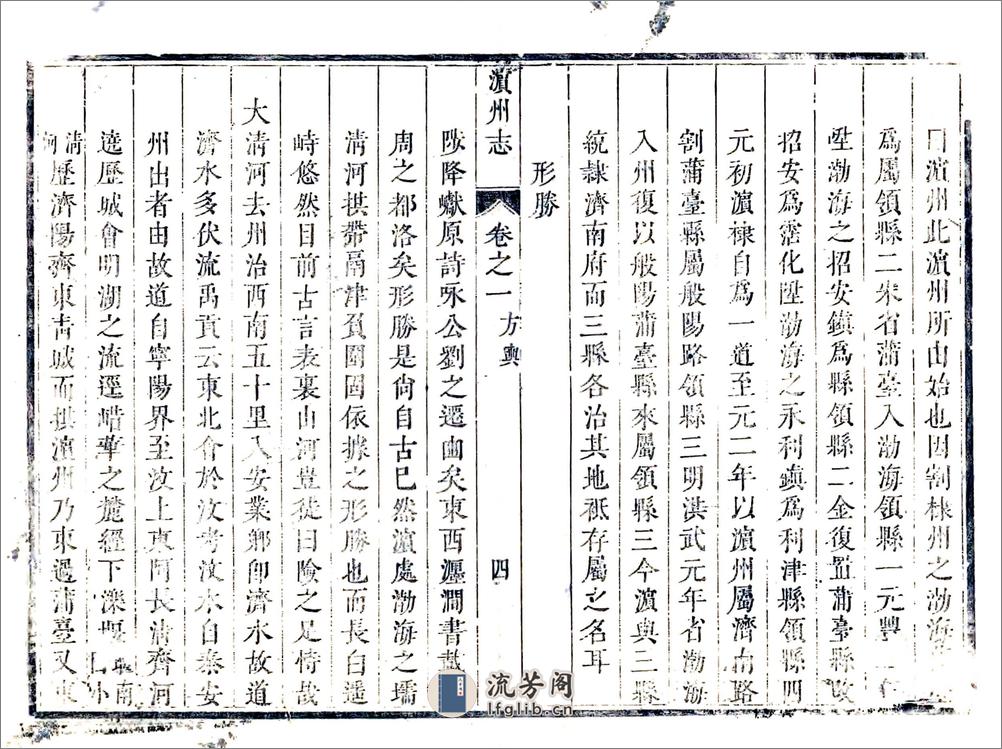 曰濱州此濱州所由始也因割棣州之渤海
爲屬領縣二宋省蒲臺入渤海領縣一元豐二年
陞渤海之招安鎮爲縣領縣二金復置蒲臺縣改
招安爲霑化陞渤海之永利鎮爲利津縣領縣四
元初濱棣自爲一道至元二年以濱州屬濟南路
割蒲臺縣屬般陽路領縣三明洪武元年省渤海
入州復以般陽蒲臺縣來屬領縣三今濱與三縣
統隸濟南府而三縣各治其地祗存屬之名耳
形勝
濱州志
卷之一
方輿
四
陟降巘原詩咏公劉之遷豳矣東西瀍澗書載
周之都洛矣形勝是尚自古已然濱處渤海之壖
清河拱帶鬲津負圍固依據之形勝也而長白遥
峙悠然目前古言表裏山河豈徒曰險之足恃哉
大清河去州治西南五十里入安業鄉卽濟水故道
濟水多伏流禹貢云東北會於汶考汶水自泰安
州出者由故道自寧陽界至汶上東阿長清齊河
遶歷城會明湖之流逕崉華之麓經下濼堰
南
清河歷濟陽齊東青城而拱濱州乃東過蒲臺又東
流芳阁
lfglib.cn